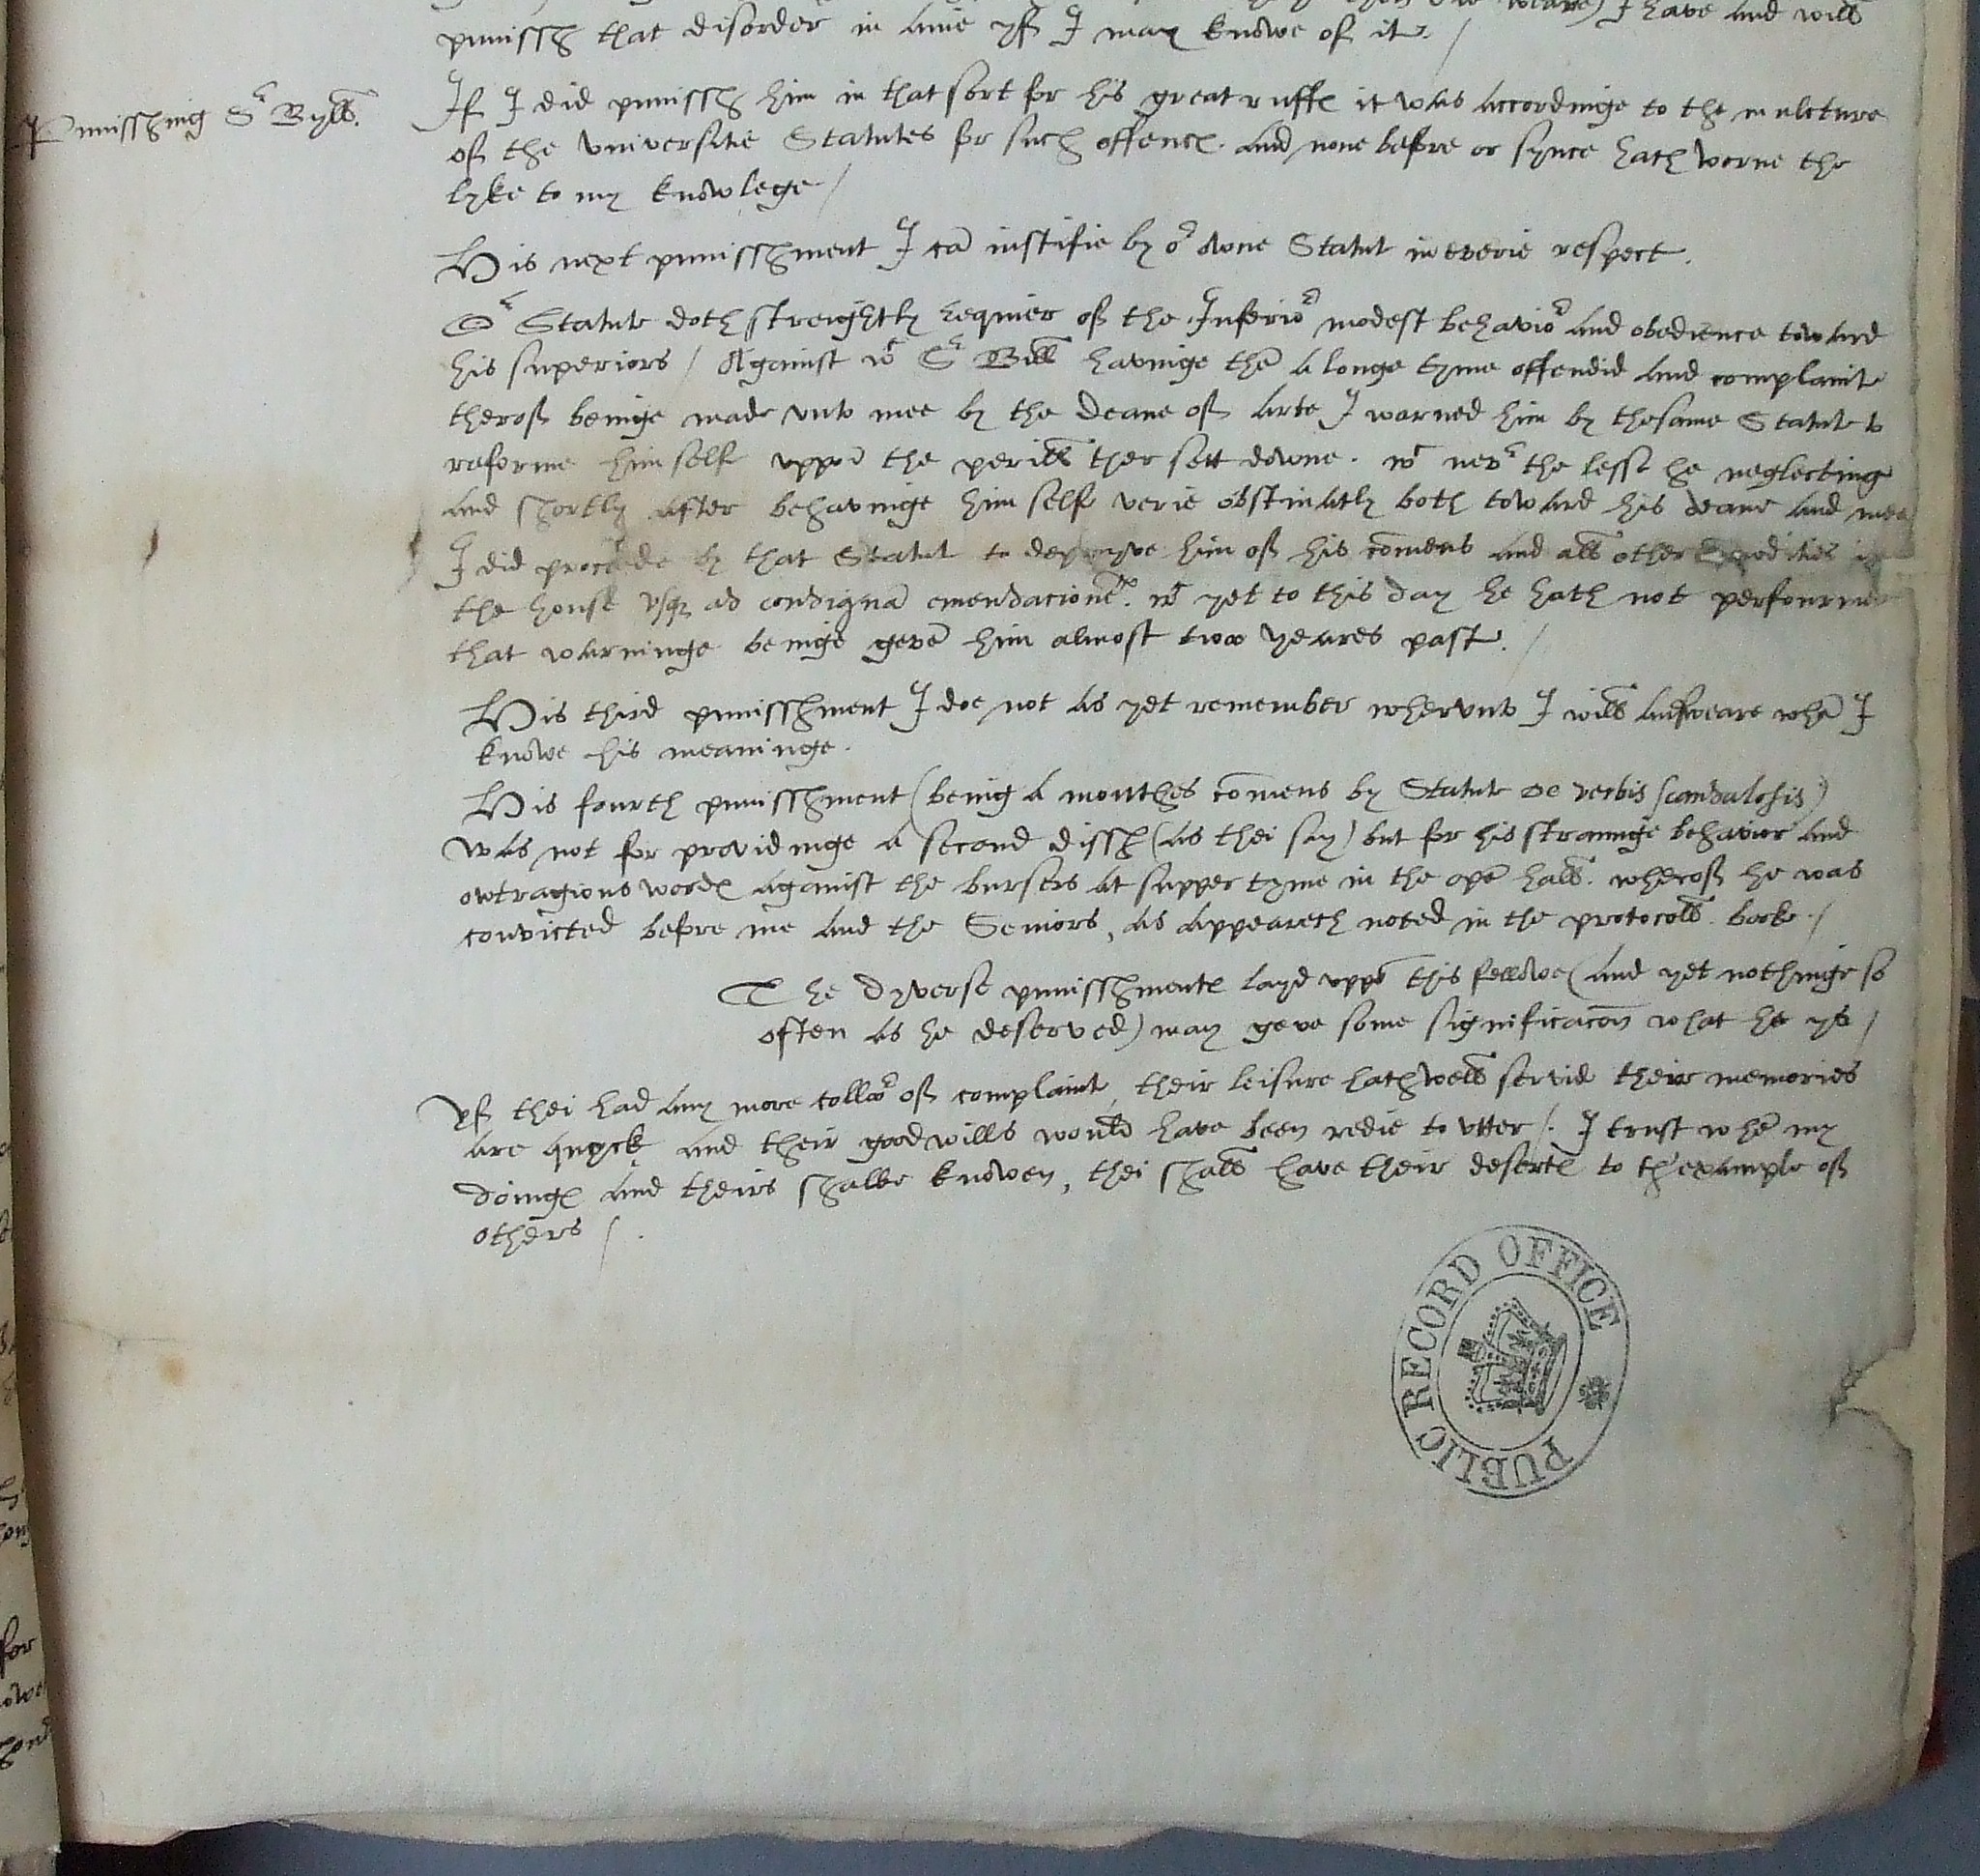 weare) I have and will
punissh that disorder in anie yf I may knowe of it. /
Punisshing Sr Byll.
If I did punissh him in that sort for his great ruffe it was accordinge to the mulcture
of the vniversitie Statutes for such offence. and none before or synce hath worne the
lyke to my knowlege /
His next punisshment I cā iustifie by or owne Statut in everie respect.
Or Statute doth streightly requier of the Inferior modest behavior and obedience toward
his superiors / Against wch Sr Bill havinge thē a longe tyme offendid and complaint
therof beinge made vnto mee by the Deane of Arte I warned him by thesame Statute to
reforme him self vppō the perill ther sett downe. wch nevr the lesse he neglecting
and shortly after behavinge him self verie obstinatly both toward his deane and mee
I did procede by that Statut to depryve him of his cōmens and all other
the house vsqz ad condignā emendacionē. wch yet to this day he hath not perfourmed
that warninge beinge gevē him almost twoo yeares past. /
His third punisshment I doe not as yet remember whervnto I will answeare whē I
knowe his meaninge.
His fourth punisshment (being a monthes cōmens by Statute de verbis scandalosis)
was not for providinge a second dissh (as thei say) but for his straunge behavior and
owtragious wordes against the bursers at supper tyme in the opē hall. wherof he was
convicted before me and the Seniors, as appeareth noted in the protocoll booke. /
The dyverse punisshmentes layd vppō this fellowe (and yet nothinge so
often as he deserved) may geve some significacōn what he ys /
Yf thei had any more collor of complaint, their leisure hath well servid their memories
are quyck and their good wills would have been redie to vtter /. I trust whē my
doinges and theirs shalbe knowen, thei shall have their desertes to th'example of
others /.
PUBLIC RECORD OFFICE
for